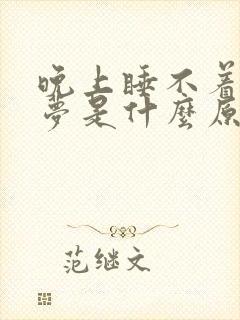 晚上睡不着
梦是什麼原
范继文